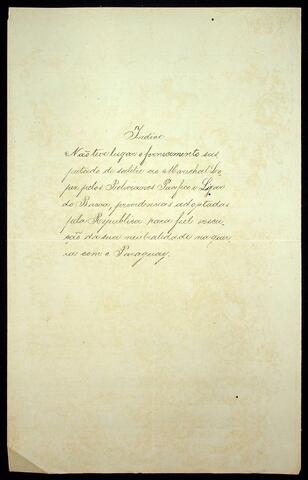 Indice
Não teve lugar o fornecimento sus
peitado de salitre ao Marechal Lo
pez pelos Bolivianos Pacifico e
do Barros, providencias adoptadas
pela Republica para fiel execu
ção da sua neutralidade na guer
ra com o Paraguay.